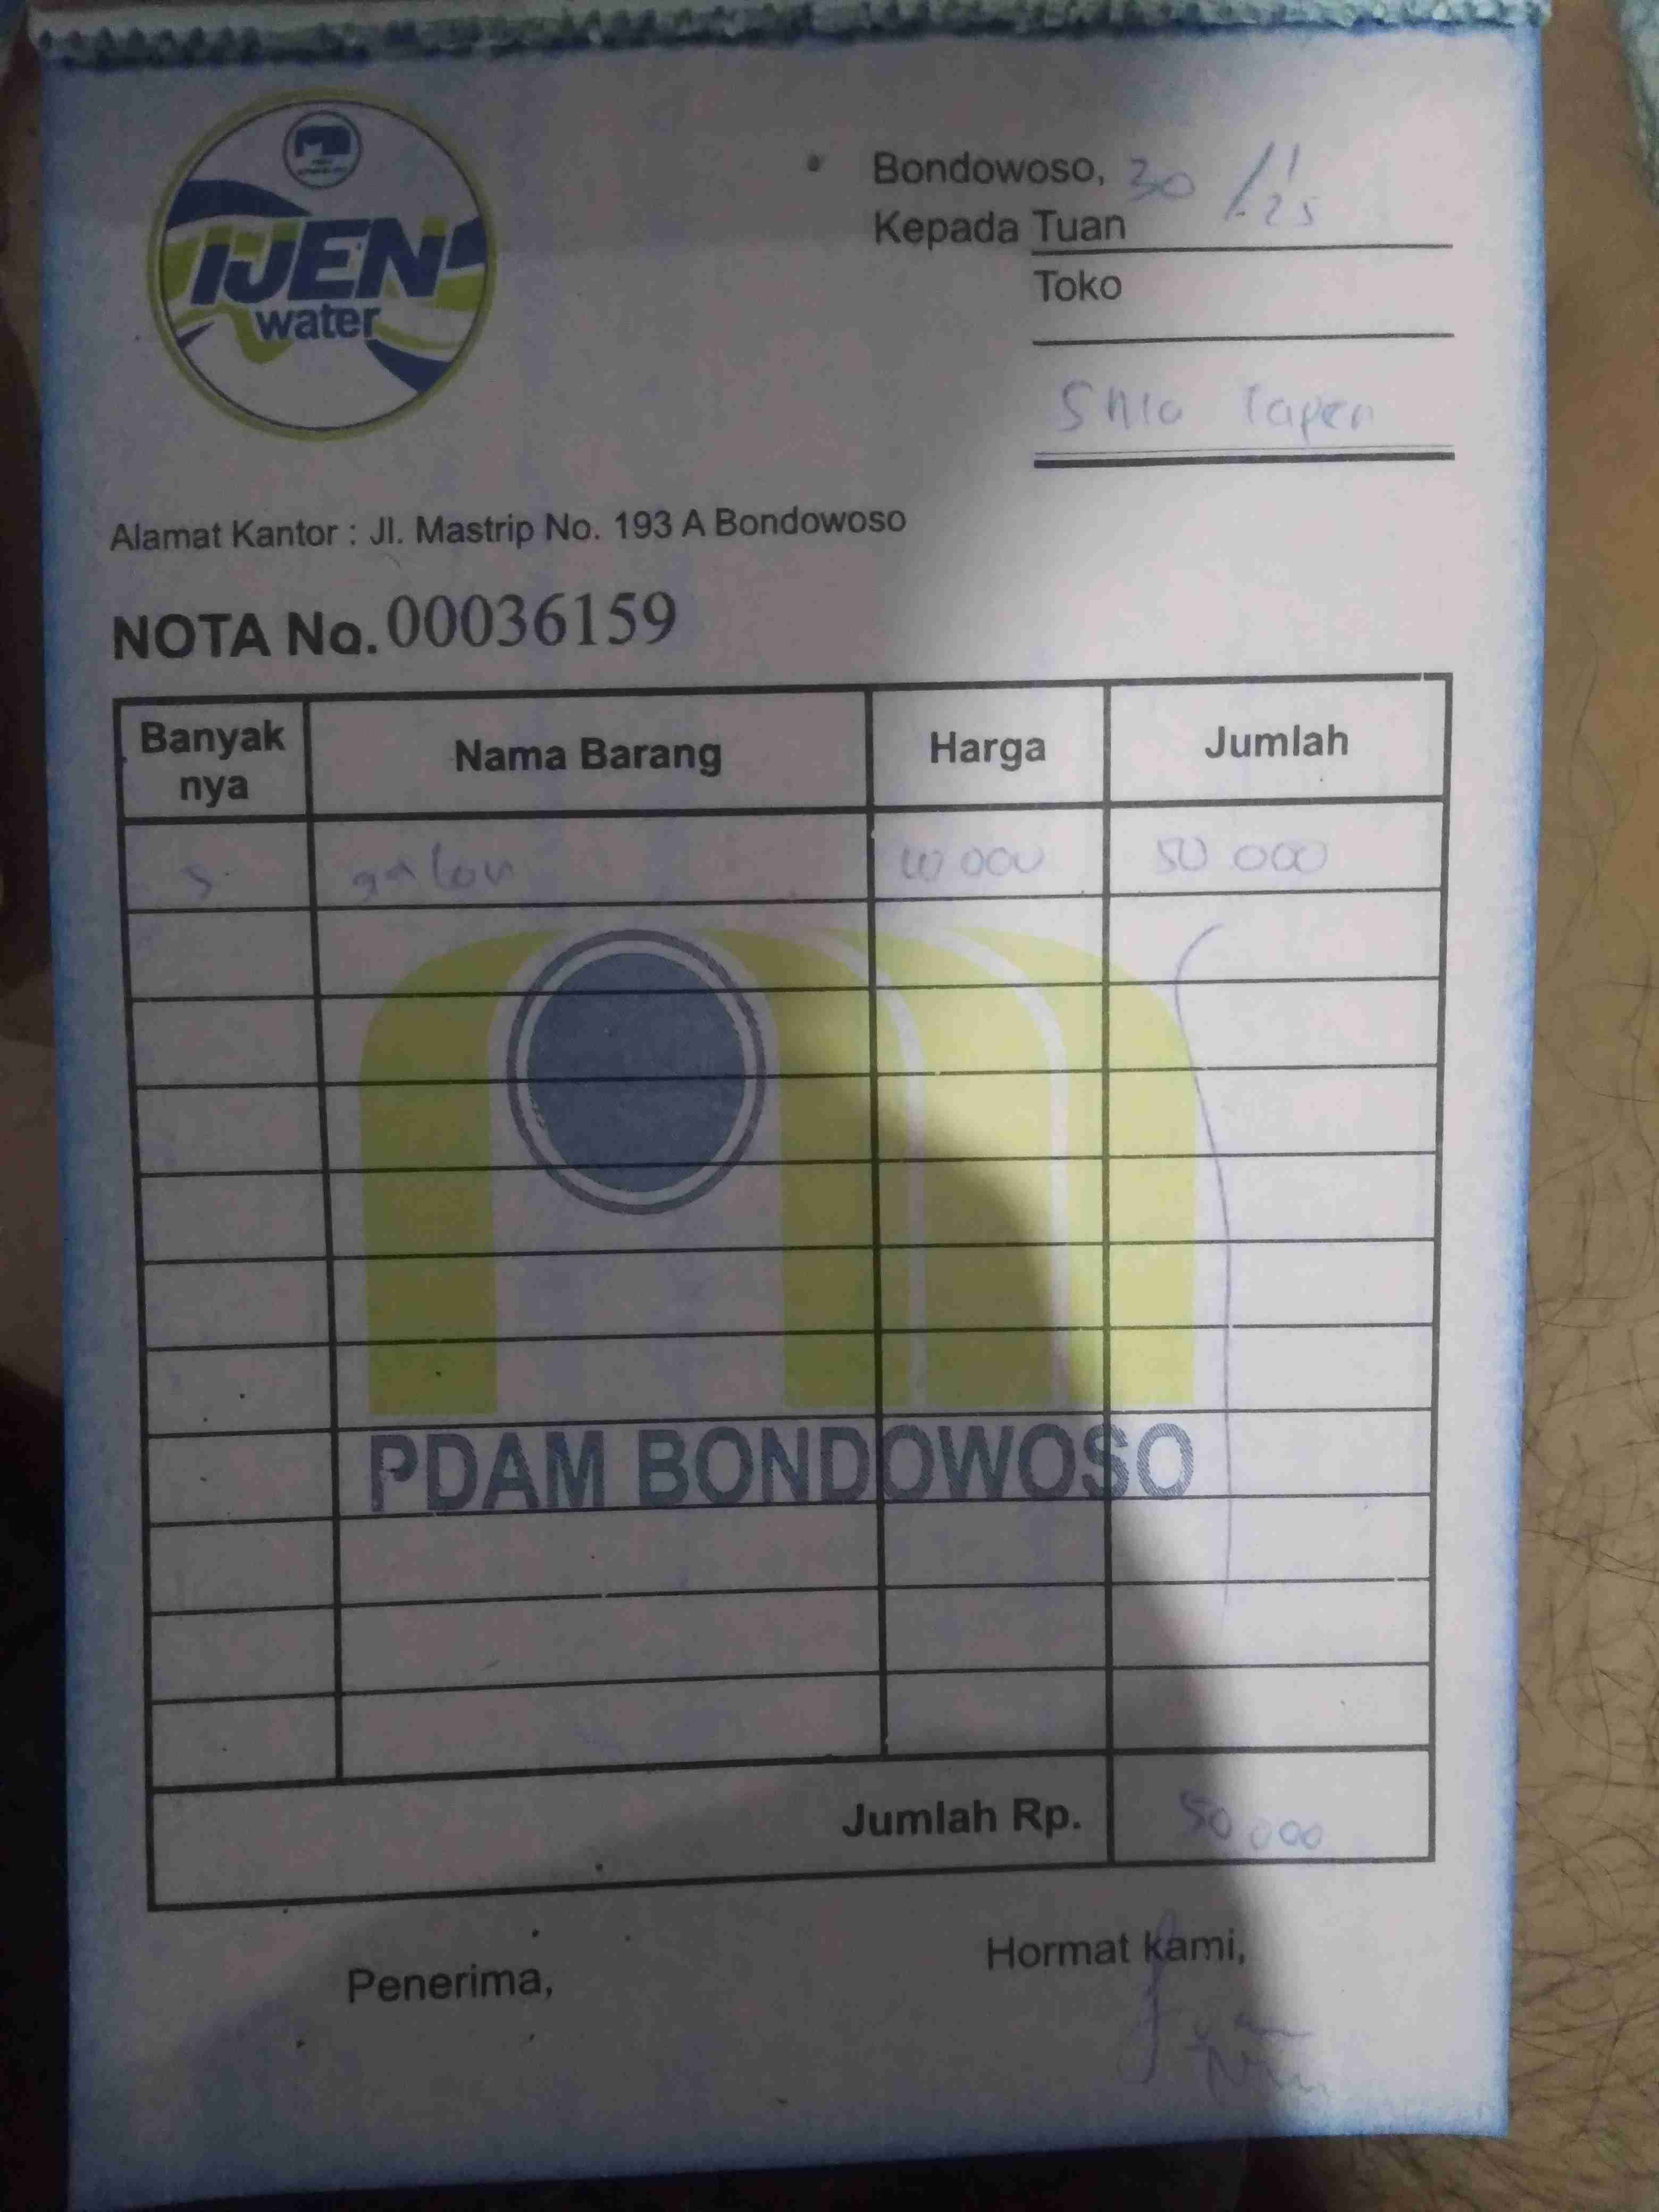 IJEN
water
Bondowoso, 30/1-25
Kepada Tuan
Toko
SMA Tapen
Alamat Kantor : Jl. Mastrip No. 193 A Bondowoso
NOTA No. 00036159
Banyak nya Nama Barang Harga Jumlah
5 galon 10 000 50 000
PDAM BONDOWOSO
Jumlah Rp. 50 000
Penerima, Hormat kami,